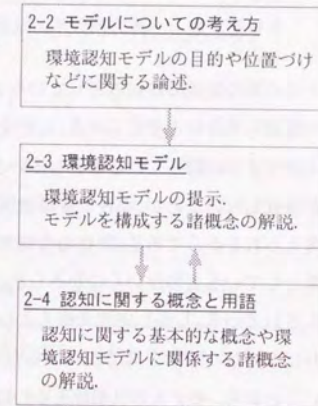 2-2 モデルについての考え方
環境認知モデルの目的や位置づけ
などに関する論述.
2-3 環境認知モデル
環境認知モデルの提示.
モデルを構成する諸概念の解説.
2-4 認知に関する概念と用語
認知に関する基本的な概念や環
境認知モデルに関係する諸概念
の解説.